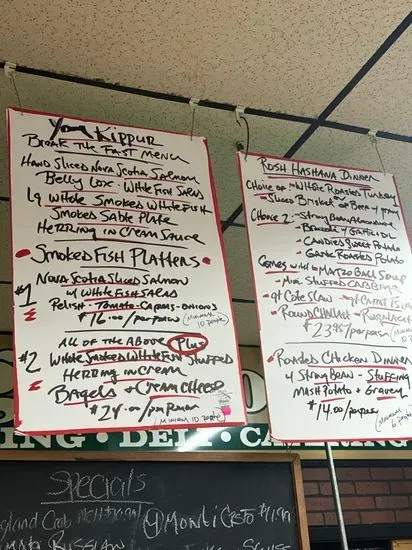 Yom Kippur
Break the Fast Menu
Hand Sliced Nova Scotia Salmon
Belly Lox · White Fish Salad
Lg Whole Smoked Whitefish
Smoked Sable Plate
Herring in Cream Sauce
• Smoked Fish Platters •
#1 Nova Scotia Sliced Salmon
w White Fish Salad
Relish - Tomato - Capers - Onions
$16.00/per person (Minimum 10 people)
All of the Above Plus
#2 Whole Smoked Whitefish Stuffed
Herring in Cream
Bagels + Cream Cheese
$24.00/per person
(Minimum 10 people)
Rosh Hashana Dinner
Choice of • Whole Roasted Turkey
• Sliced Brisket of Beef w gravy
Choice 2 - String Bean Almondine
• Broccoli w Garlic
• Candied Sweet Potato
• Garlic Roasted Potato
Comes with • Matzo Ball Soup
• Mini Stuffed Cabbage
• qt Cole Slaw • qt
• Round Challah •
$23.95/per person (Minimum 10 people)
• Roasted Chicken Dinner
w String Bean - Stuffing
Mash Potato + Gravy
$14.00/per person (Minimum 6 people)
ING • DELI • CA
Specials